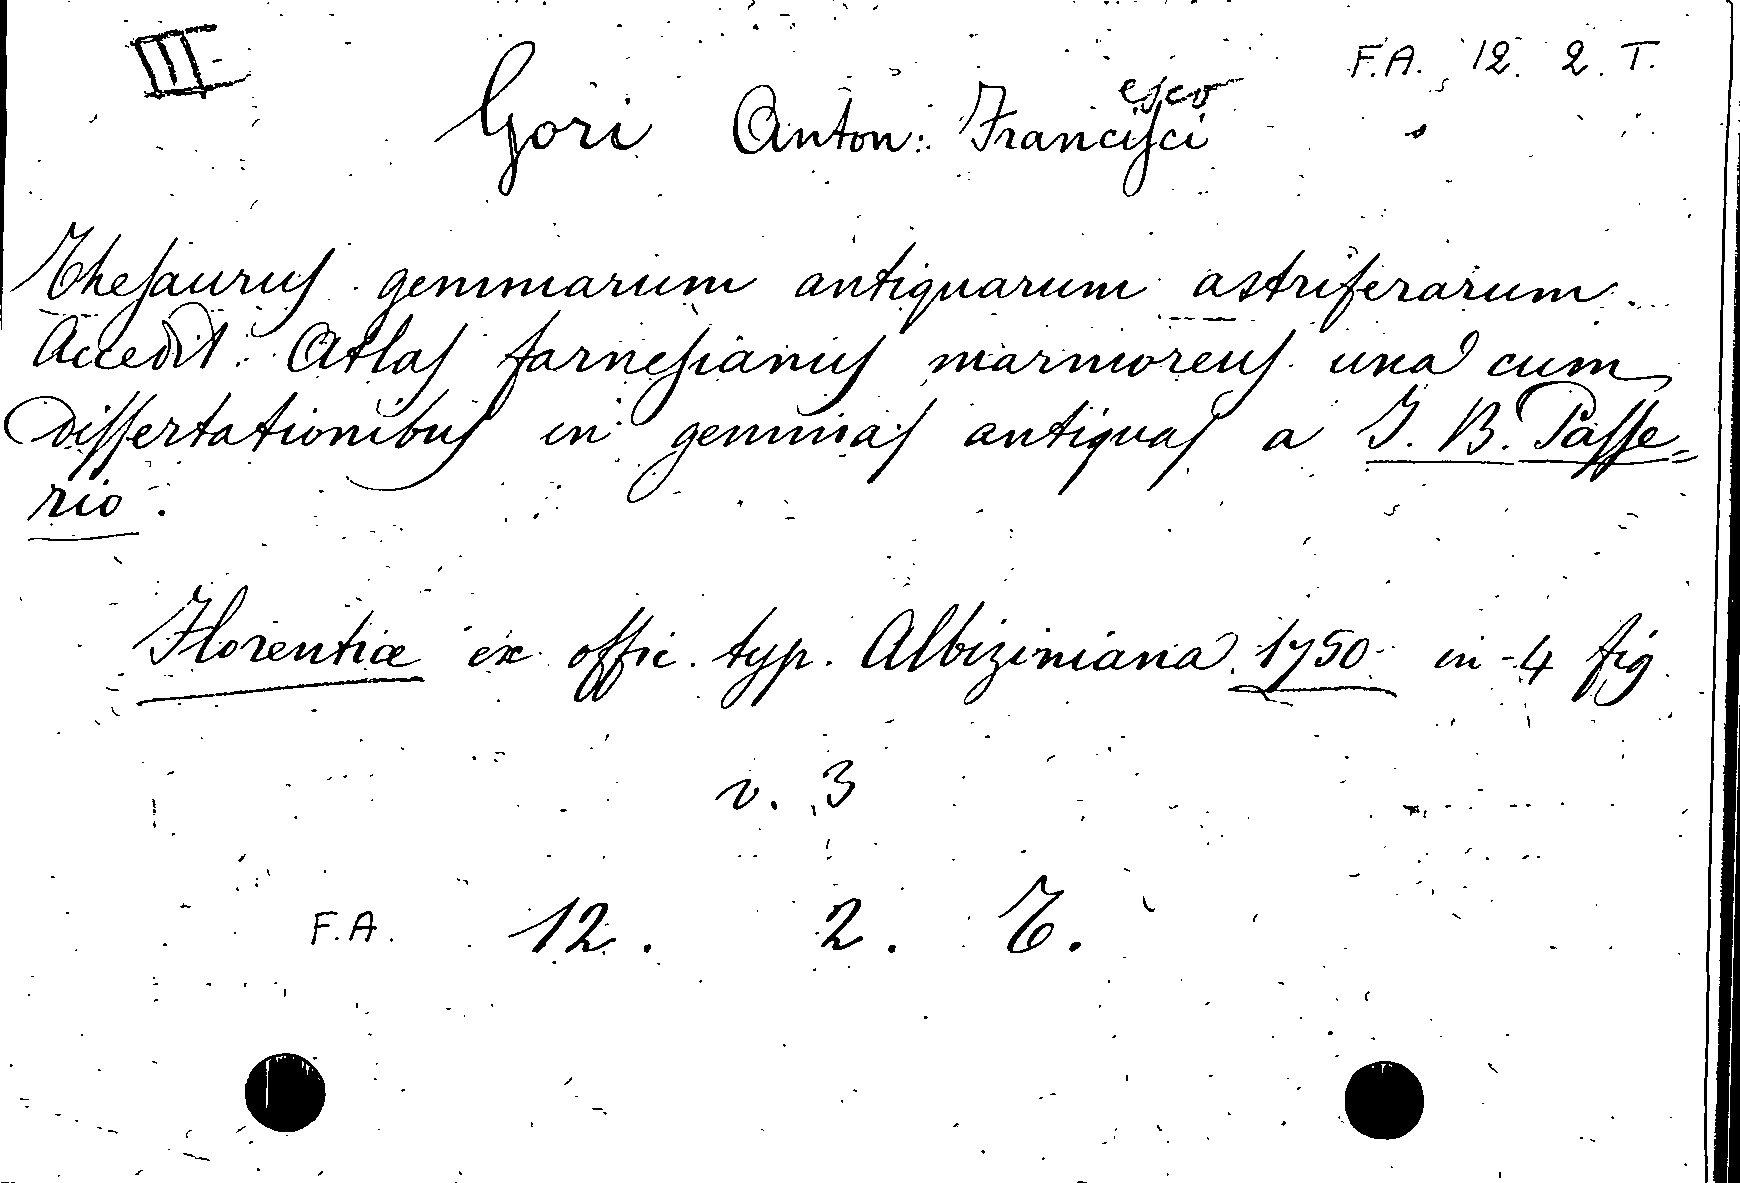 III
F.A. 12. 2. T.
esco
Gori Anton: Francisci
Thesaurus gemmarum antiquarum astriferarum
Accedit Atlas farnesianus marmoreus una cum
dissertationibus in gemmas antiquas a J. B. Passe=
rio.
Florentiæ ex offic. typ. Albiziniana 1750 in-4 fig
v. 3
F.A. 12. 2. T.